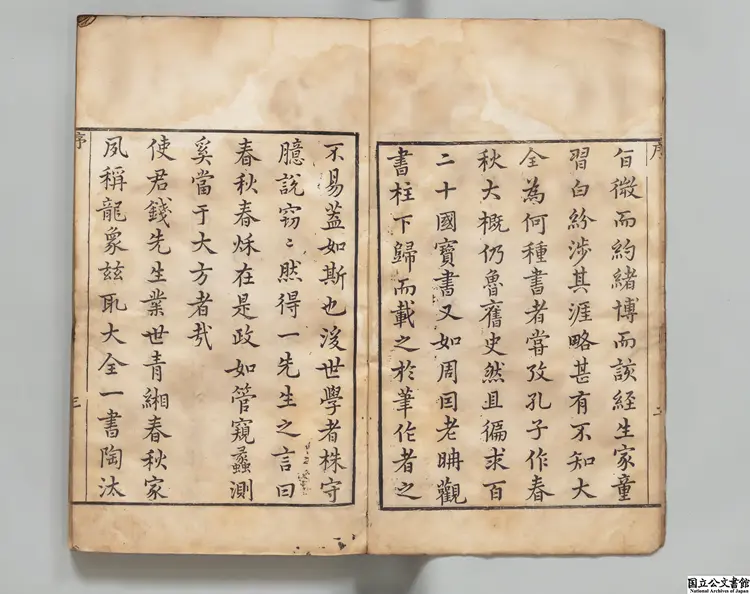 序
旨微而約緒博而該経生家童
習白紛涉其涯略甚有不知大
全為何種書者嘗攷孔子作春
秋大概仍魯舊史然且徧求百
二十國寶書又如周囘老耼觀
書柱下歸而載之於筆作者之
二
不易葢如斯也後世學者株守
臆說窃〻然得一先生之言曰
春秋春秌在是政如管窺蠡測
奚當于大方者㢤
使君錢先生業世青緗春秋家
夙稱龍象玆取大全一書陶汰
序
三
国立公文書館
National Archives of Japan